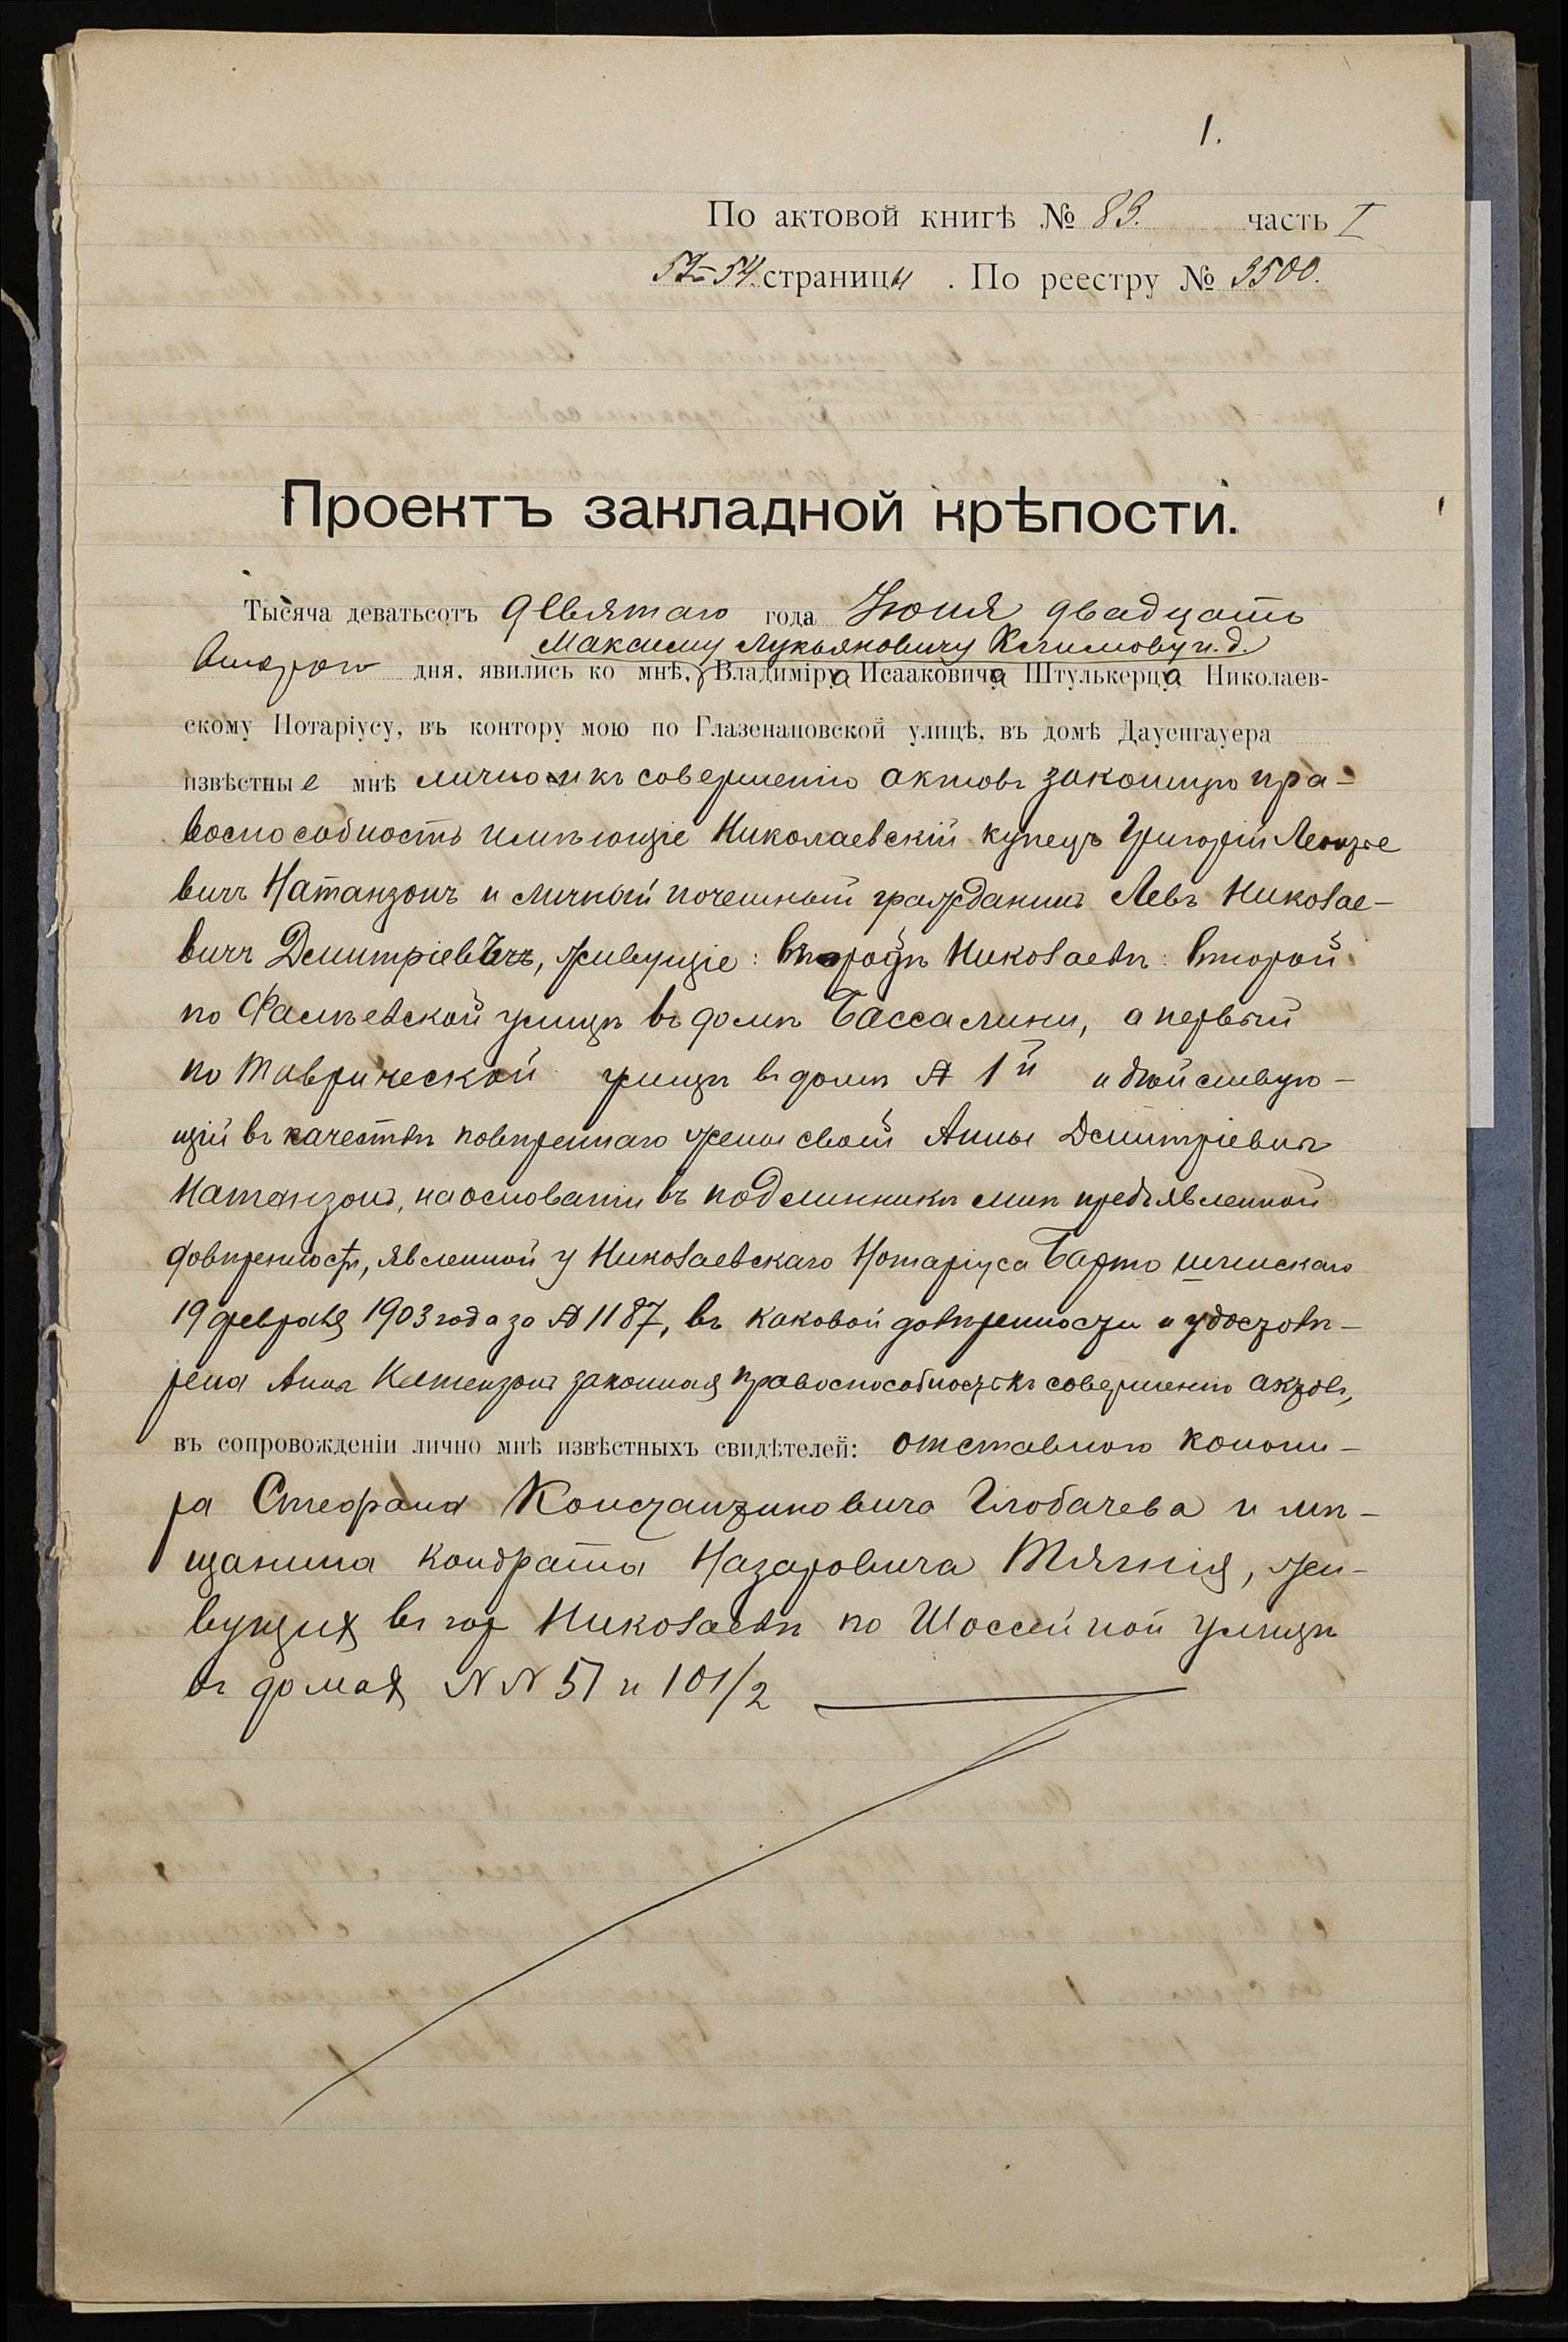 1.
По актовой книгѣ № 89. часть I
52-54. страницы . По реестру № 3500.
Проектъ закладной крѣпости.
Тысяча деватьсотъ девятаго года Іюня двадцать
Максиму Лукьяновичу Климову и. д.
втораго дня, явились ко мнѣ, Владиміра Исааковича Штулькерца Николаев-
скому Нотаріусу, въ контору мою по Глазенаповской улицѣ, въ домѣ Дауенгауера
извѣстные мнѣ лично и къ совершенію актовъ законную пра-
воспособность имѣющіе Николаевскій купецъ Григорій Леонтье
вичъ Натанзонъ и личный почетный гражданинъ Левъ Николае-
вичъ Дмитріевъ, живущіе: въ городѣ Николаевѣ: второй
по Фалѣевской улицѣ въ домѣ Бассалини, а первый
по Таврической улицѣ въ домѣ № 1й и дѣйствую-
щій въ качествѣ повѣреннаго жены своей Анны Дмитріевны
Натанзонъ, на основаніи въ подлинникѣ мнѣ предъявленной
довѣренности, явленной у Николаевскаго Нотаріуса Бартошинскаго
19 февраля 1903 года за № 1187, въ каковой довѣренности и удостовѣ-
рена Анны Натанзонъ законная правоспособность къ совершенію актовъ,
въ сопровожденіи лично мнѣ извѣстныхъ свидѣтелей: отставного канони-
ра Стефана Константиновича Глобачева и мѣ-
щанина Кондрата Назаровича Тягнія, жи-
вущихъ въ гор Николаевѣ по Шоссейной улицѣ
въ домахъ NN 51 и 101/2